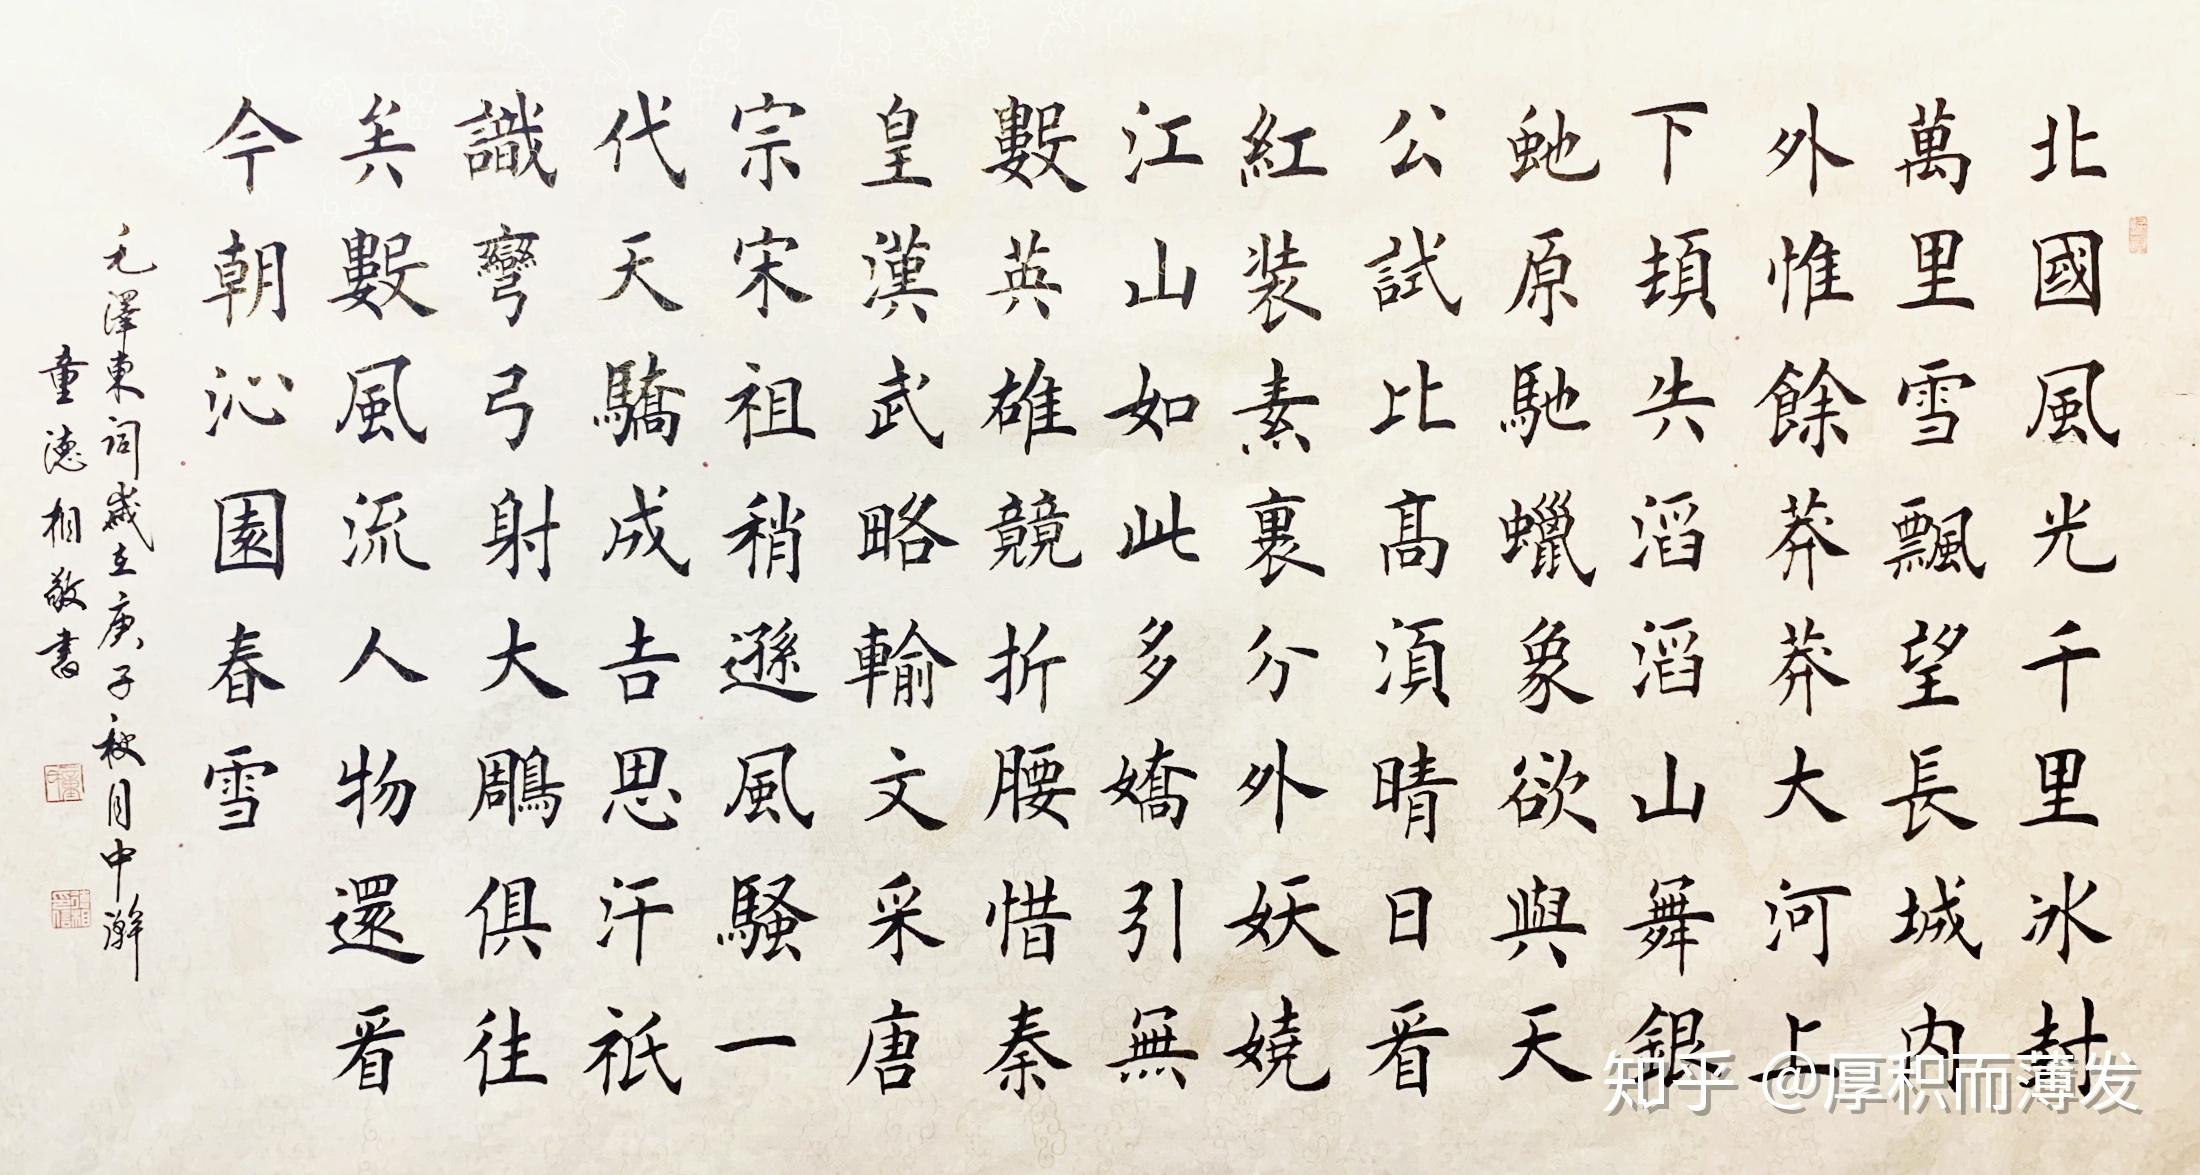 北國風光千里冰封
萬里雪飄望長城内
外惟餘莽莽大河上
下頓失滔滔山舞銀
虵原馳蠟象欲與天
公試比髙湏晴日看
紅装素裹分外妖嬈
江山如此多嬌引無
數英雄競折腰惜秦
皇漢武略輸文采唐
宗宋祖稍遜風騷一
代天驕成吉思汗祇
識彎弓射大鵰俱往
矣數風流人物還看
今朝沁園春雪
毛澤東词歲在庚子秋月中澣
童德相敬書
知乎 @厚积而薄发